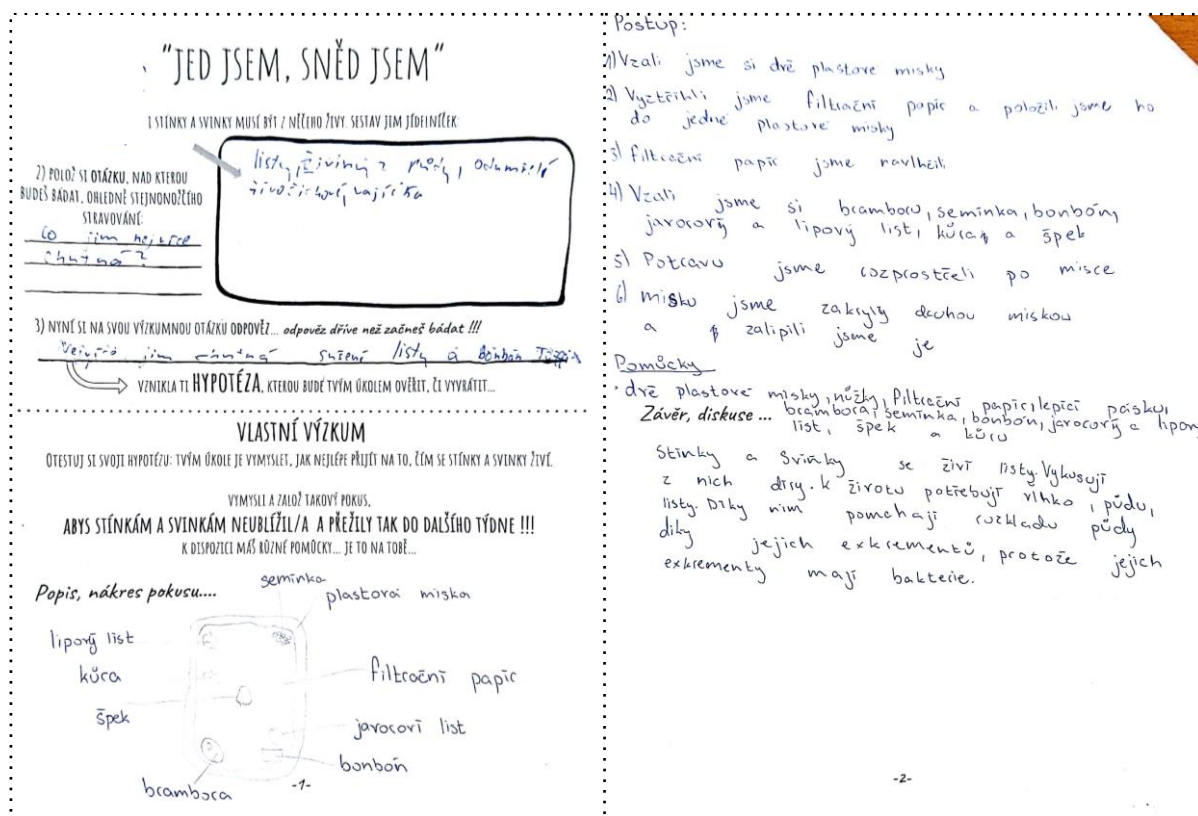 "JED JSEM, SNĚD JSEM"
I STÍNKY A SVINKY MUSÍ BÝT Z NĚČEHO ŽIVY. SESTAV JIM JÍDELNÍČEK
listy, živiny z půdy, odumřelí
živočichové, vajíčka
2) POLOŽ SI OTÁZKU, NAD KTEROU
BUDEŠ BÁDAT, OHLEDNĚ STEJNONOŽČÍHO
STRAVOVÁNÍ:
Co jim nejvíce
chutná?
3) NYNÍ SI NA SVOU VÝZKUMNOU OTÁZKU ODPOVĚZ... odpověz dříve než začneš bádat !!!
jim chutná sušení listy a Bonbón
VZNIKLA TI HYPOTÉZA, KTEROU BUDE TVÝM ÚKOLEM OVĚŘIT, ČI VYVRÁTIT...
VLASTNÍ VÝZKUM
OTESTUJ SI SVOJI HYPOTÉZU: TVÝM ÚKOLE JE VYMYSLET, JAK NEJLÉPE PŘIJÍT NA TO, ČÍM SE STÍNKY A SVINKY ŽIVÍ.
VYMYSLI A ZALOŽ TAKOVÝ POKUS,
ABYS STÍNKÁM A SVINKÁM NEUBLÍŽIL/A A PŘEŽILY TAK DO DALŠÍHO TÝDNE !!!
K DISPOZICI MÁŠ RŮZNÉ POMŮCKY... JE TO NA TOBĚ...
Popis, nákres pokusu....
semínka
plastová miska
lipový list
kůra
filtrační papír
špek
javorovi list
bonbón
brambora
-1-
Postup:
1) Vzali jsme si dvě plastové misky
2) Vyztřihli jsme filtrační papír a položili jsme ho
do jedné plastové misky
3) filtrační papír jsme navlhčili
4) Vzali jsme si bramboru, semínka, bonbón,
javorový a lipový list, kůra a špek
5) Potravu jsme rozprostřeli po misce
6) misku jsme zakryly druhou miskou
a zalipili jsme je
Pomůcky
· dvě plastové misky, nůžky, filtrační papír, lepící pásku,
Závěr, diskuse ... brambora, semínka, bonbón, javorový a lipový
list, špek a kůru
Stínky a Svinky se živí listy. Vykusují
z nich díry. k životu potřebují vlhko, půdu,
listy. Díky nim pomchají rozkladu půdy
díky jejich exkrementů, protože jejich
exkrementy mají bakterie.
-2-